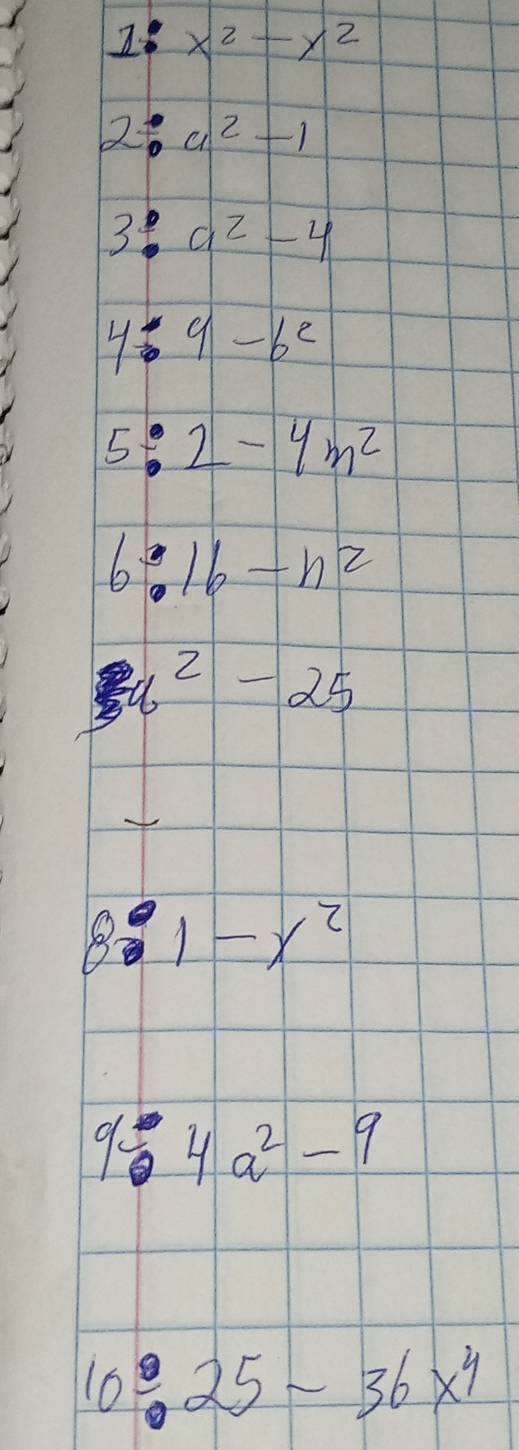 1: x² - y²
2: a² - 1
3: a² - 4
4: 9 - b²
5: 1 - 4m²
6: 16 - n²
a² - 25
8: 1 - y²
9: 4a² - 9
10: 25 - 36x⁴